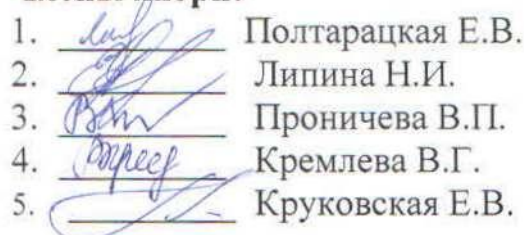 1. Полтарацкая Е.В.
2. Липина Н.И.
3. Проничева В.П.
4. Кремлева В.Г.
5. Круковская Е.В.